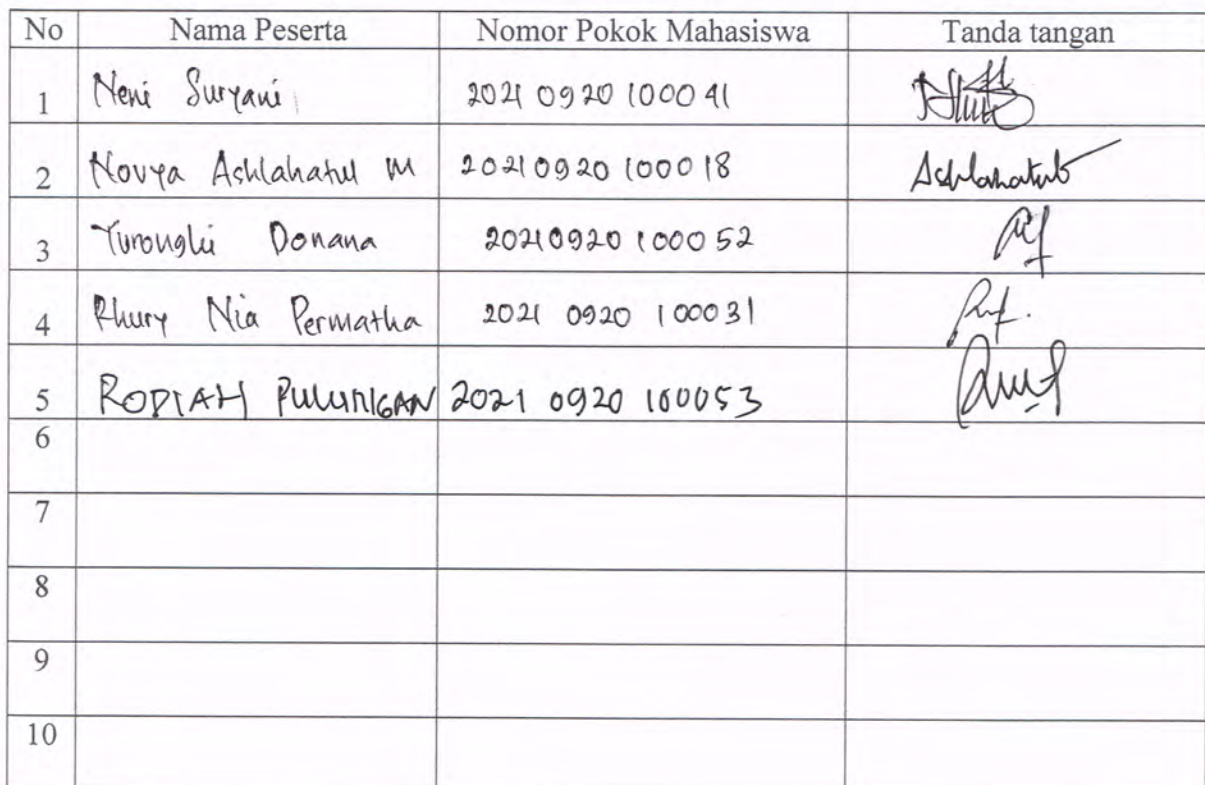 No Nama Peserta Nomor Pokok Mahasiswa Tanda tangan
1 Neni Suryani 2021 0920 100041
2 Novya Ashlahatul M 20210920 100018 Ashlahatul
3 Donana 20210920 100052
4 Rhury Nia Permatha 2021 0920 100031
5 RODIAH 2021 0920 100053
6
7
8
9
10